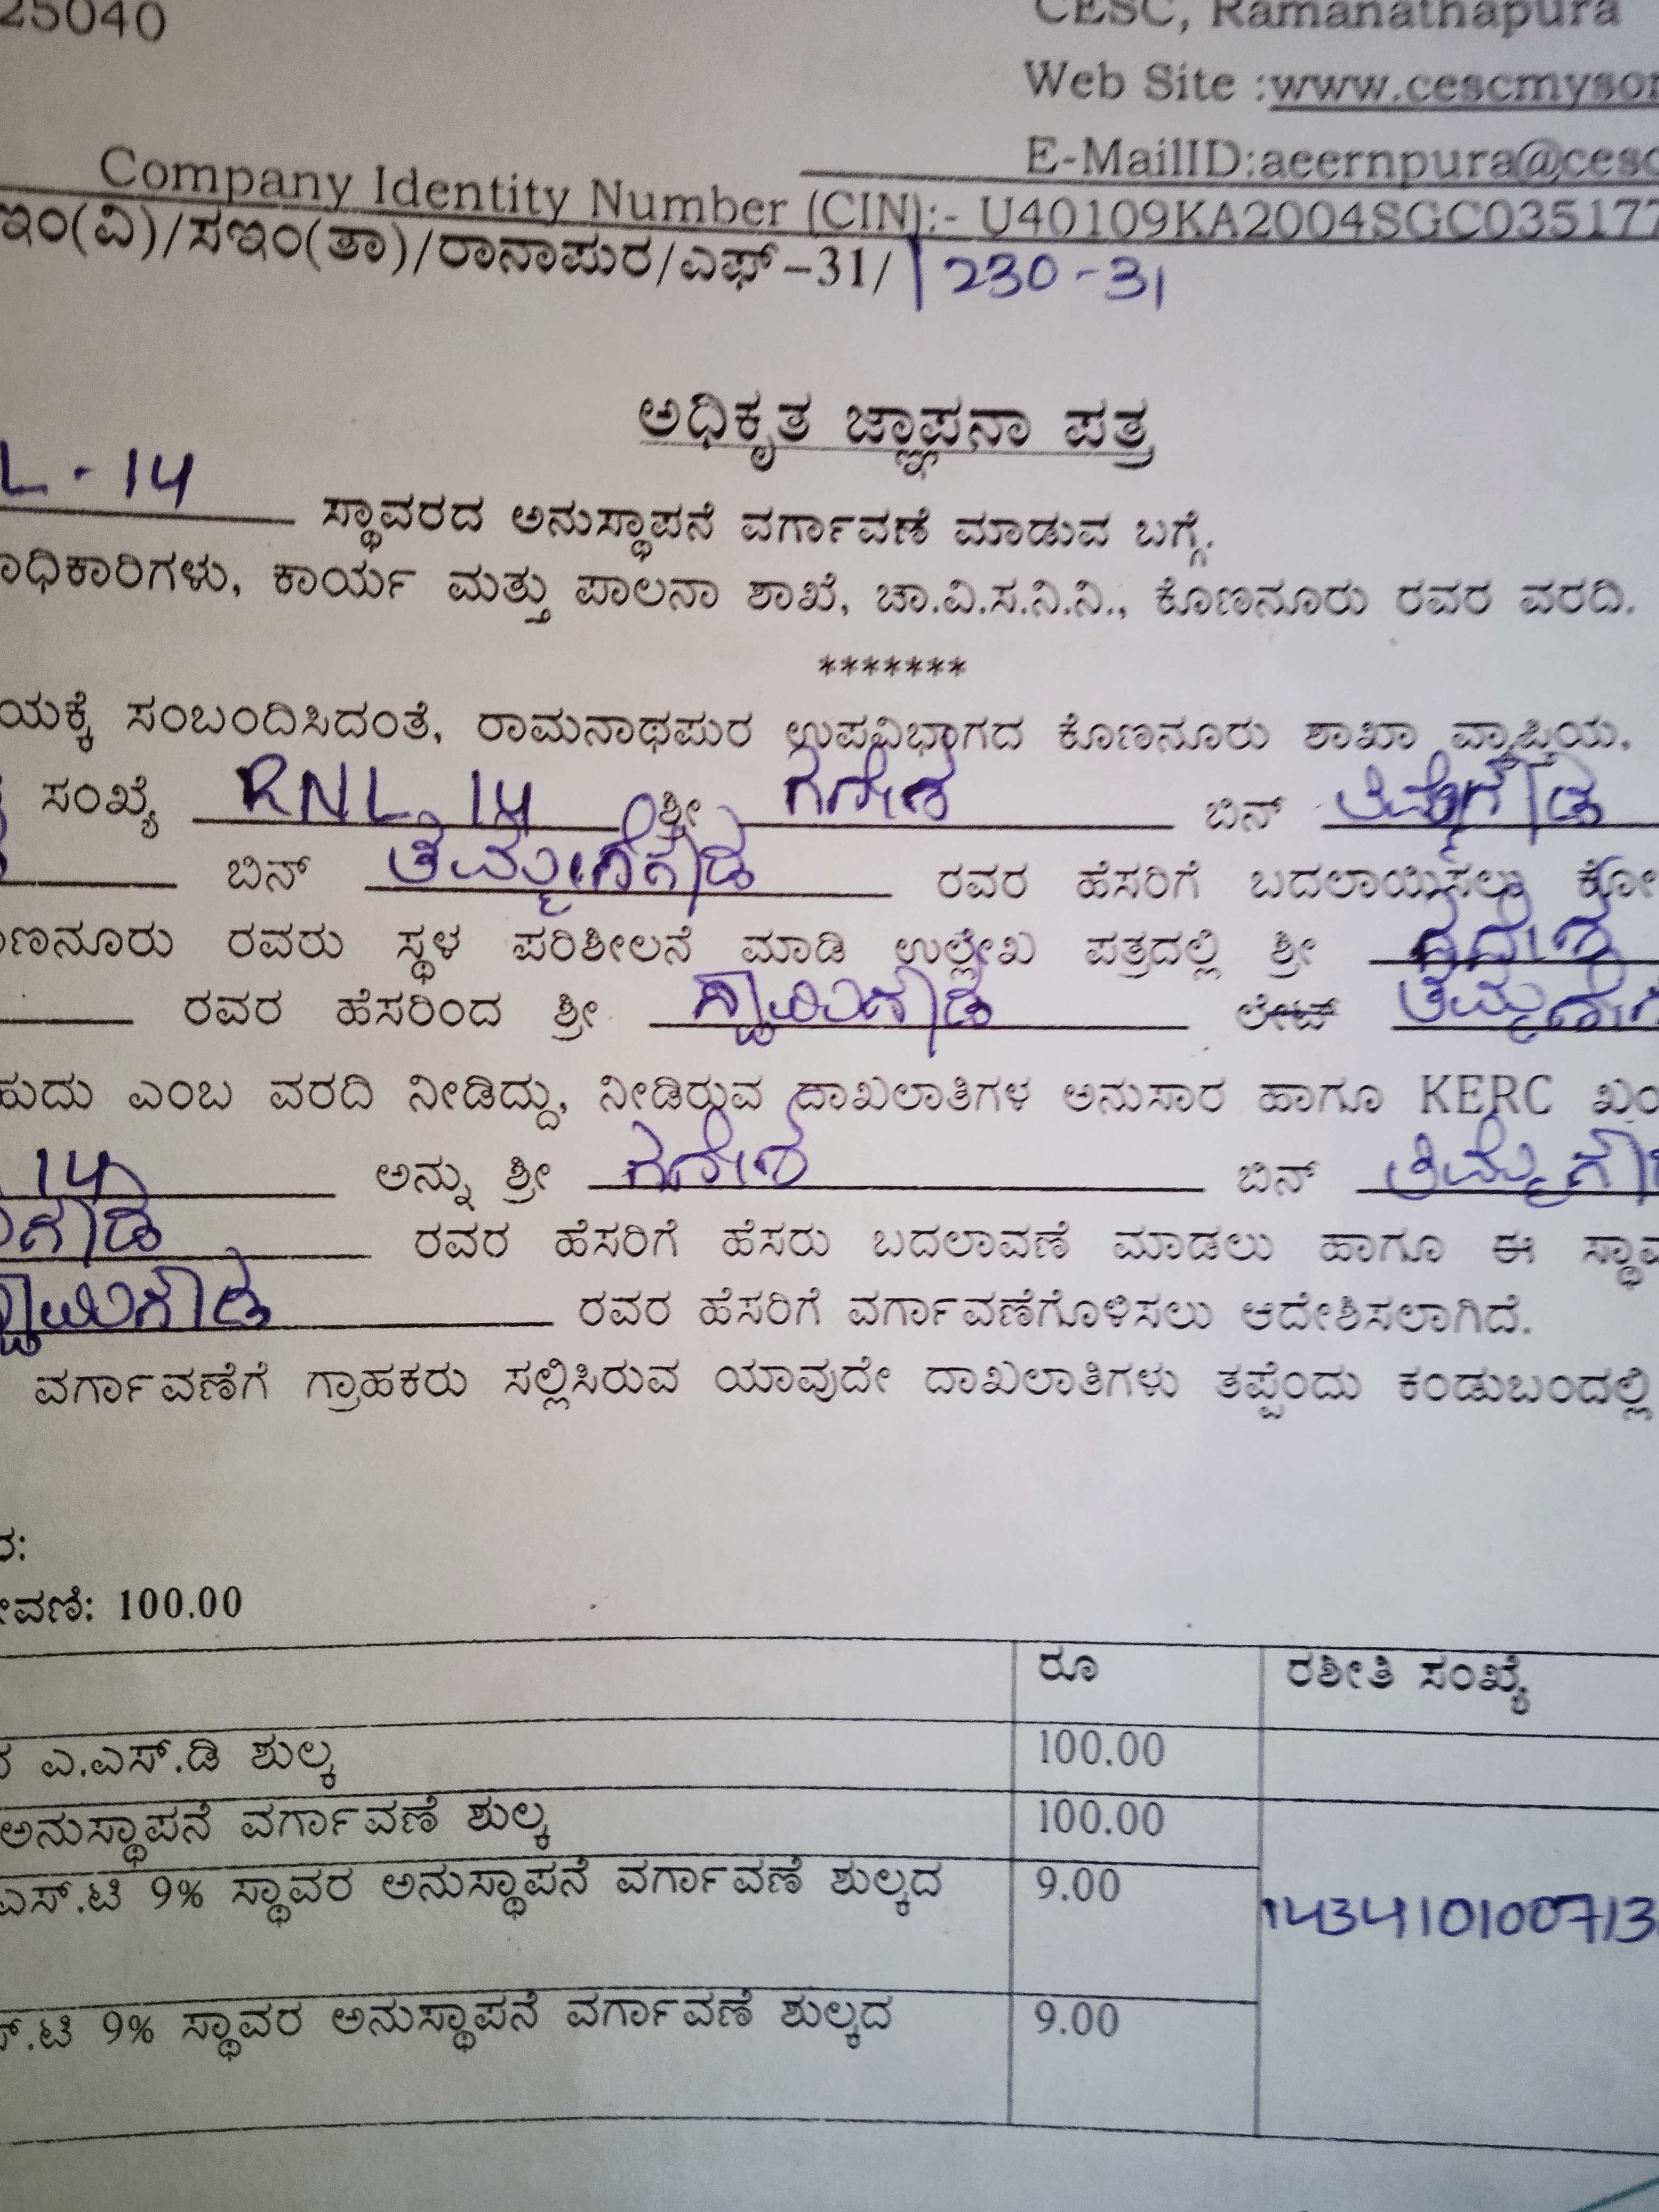 25040
CESC, Ramanathapura
Web Site :www.cescmysor
E-MailID:aeernpura@cesc
Company Identity Number (CIN):- U40109KA2004SGC035177
ಇಂ(ವಿ)/ಸಇಂ(ತಾ)/ರಾನಾಪುರ/ಎಫ್-31/1230-31
ಅಧಿಕೃತ ಜ್ಞಾಪನಾ ಪತ್ರ
L-14 ಸ್ಥಾವರದ ಅನುಸ್ಥಾಪನೆ ವರ್ಗಾವಣೆ ಮಾಡುವ ಬಗ್ಗೆ.
ಾಧಿಕಾರಿಗಳು, ಕಾರ್ಯ ಮತ್ತು ಪಾಲನಾ ಶಾಖೆ, ಚಾ.ವಿ.ಸ.ನಿ.ನಿ., ಕೊಣನೂರು ರವರ ವರದಿ.
*******
ಯಕ್ಕೆ ಸಂಬಂದಿಸಿದಂತೆ, ರಾಮನಾಥಪುರ ಉಪವಿಭಾಗದ ಕೊಣನೂರು ಶಾಖಾ ವ್ಯಾಪ್ತಿಯ,
ಸಂಖ್ಯೆ RNL 14 ಶ್ರೀ ಗಣೇಶ ಬಿನ್ ತಿಮ್ಮೇಗೌಡ
ಬಿನ್ ತಿಮ್ಮೇಗೌಡ ರವರ ಹೆಸರಿಗೆ ಬದಲಾಯಿಸಲು ಕೋ
ಣನೂರು ರವರು ಸ್ಥಳ ಪರಿಶೀಲನೆ ಮಾಡಿ ಉಲ್ಲೇಖ ಪತ್ರದಲ್ಲಿ ಶ್ರೀ ಗಣೇಶ
ರವರ ಹೆಸರಿಂದ ಶ್ರೀ ಸ್ವಾಮಿಗೌಡ ಲೇಟ್ ತಿಮ್ಮೇಗ
ಹುದು ಎಂಬ ವರದಿ ನೀಡಿದ್ದು, ನೀಡಿರುವ ದಾಖಲಾತಿಗಳ ಅನುಸಾರ ಹಾಗೂ KERC ಖಂ
14 ಅನ್ನು ಶ್ರೀ ಗಣೇಶ ಬಿನ್ ತಿಮ್ಮೇಗೌ
ಗೌಡ ರವರ ಹೆಸರಿಗೆ ಹೆಸರು ಬದಲಾವಣೆ ಮಾಡಲು ಹಾಗೂ ಈ ಸ್ಥಾವ
ಸ್ವಾಮಿಗೌಡ ರವರ ಹೆಸರಿಗೆ ವರ್ಗಾವಣೆಗೊಳಿಸಲು ಆದೇಶಿಸಲಾಗಿದೆ.
ವರ್ಗಾವಣೆಗೆ ಗ್ರಾಹಕರು ಸಲ್ಲಿಸಿರುವ ಯಾವುದೇ ದಾಖಲಾತಿಗಳು ತಪ್ಪೆಂದು ಕಂಡುಬಂದಲ್ಲಿ
ರ:
ೇವಣಿ: 100.00
ರೂ ರಶೀತಿ ಸಂಖ್ಯೆ
ರ ಎ.ಎಸ್.ಡಿ ಶುಲ್ಕ 100.00
ಅನುಸ್ಥಾಪನೆ ವರ್ಗಾವಣೆ ಶುಲ್ಕ 100.00
ಎಸ್.ಟಿ 9% ಸ್ಥಾವರ ಅನುಸ್ಥಾಪನೆ ವರ್ಗಾವಣೆ ಶುಲ್ಕದ 9.00
143410100713
ಸ್.ಟಿ 9% ಸ್ಥಾವರ ಅನುಸ್ಥಾಪನೆ ವರ್ಗಾವಣೆ ಶುಲ್ಕದ 9.00